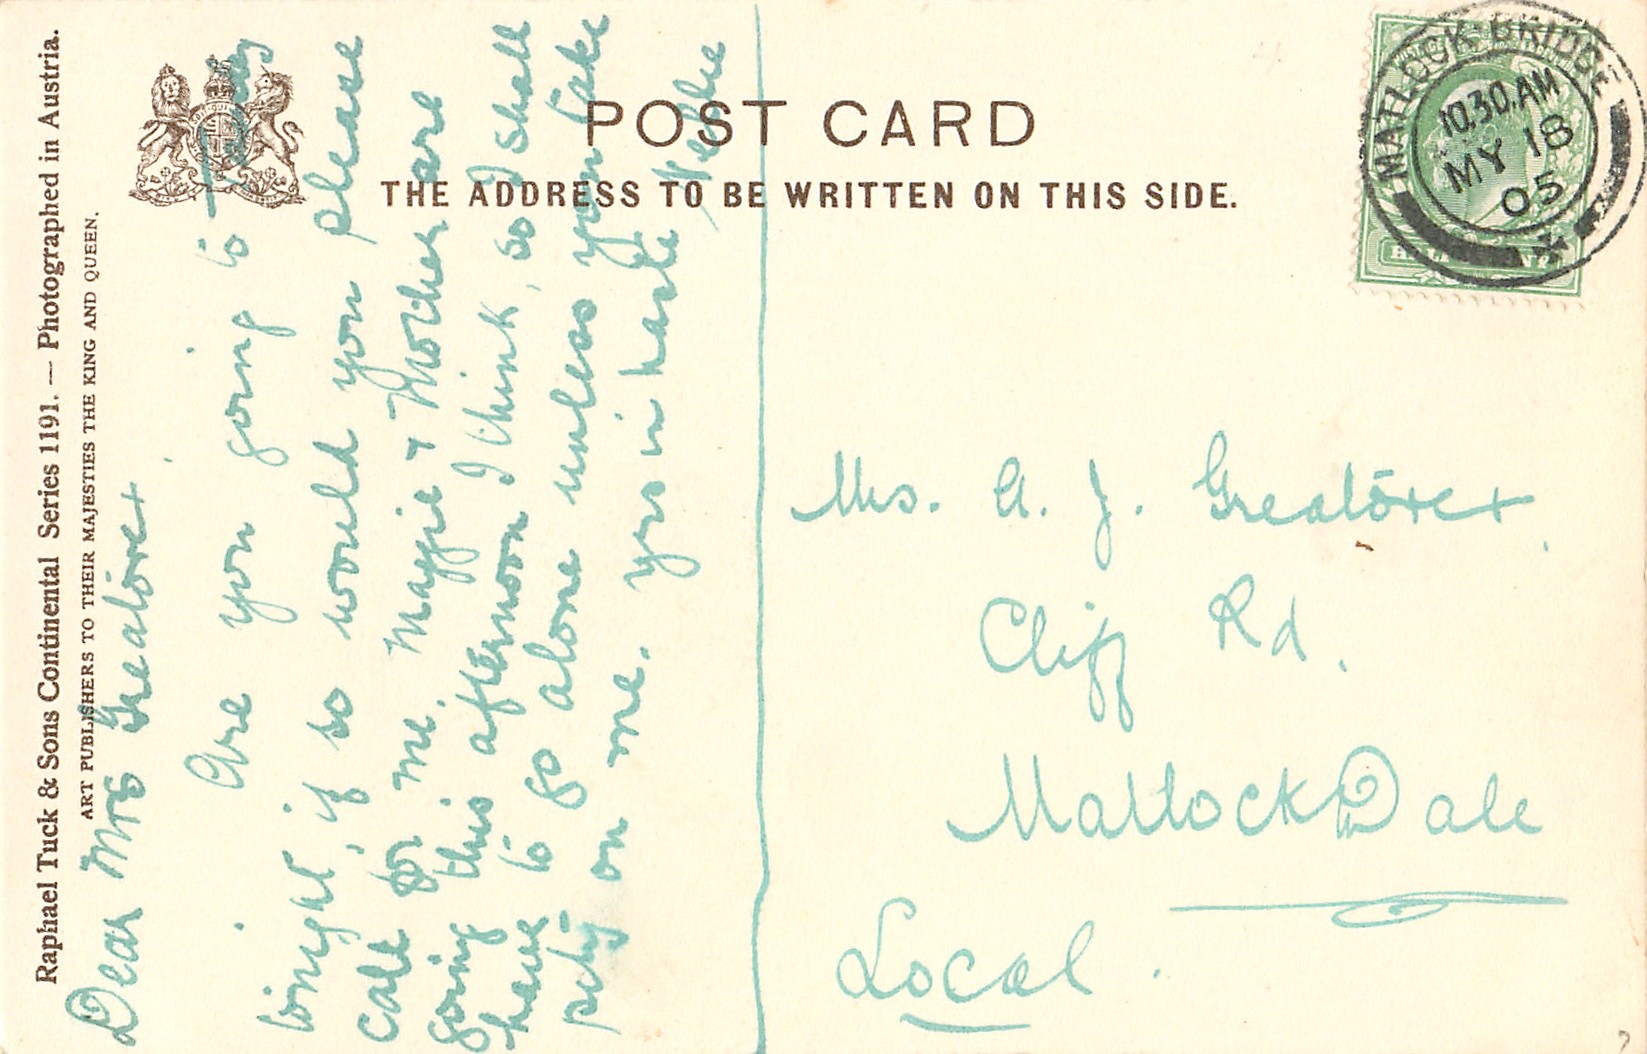 POST CARD
THE ADDRESS TO BE WRITTEN ON THIS SIDE.
Raphael Tuck & Sons Continental Series 1191. — Photographed in Austria.
ART PUBLISHERS TO THEIR MAJESTIES THE KING AND QUEEN.
Dear Mrs Greatorex
Are you going to
tonight, if so would you please
call for me. Maggie & Mother are
going this afternoon I think, so I shall
have to go alone unless you take
pity on me. Yrs in haste
Nellie
MATLOCK BRIDGE
10.30.AM
MY 18
05
Mrs. A. J. Greatorex
Cliff Rd.
Matlock Dale
Local.